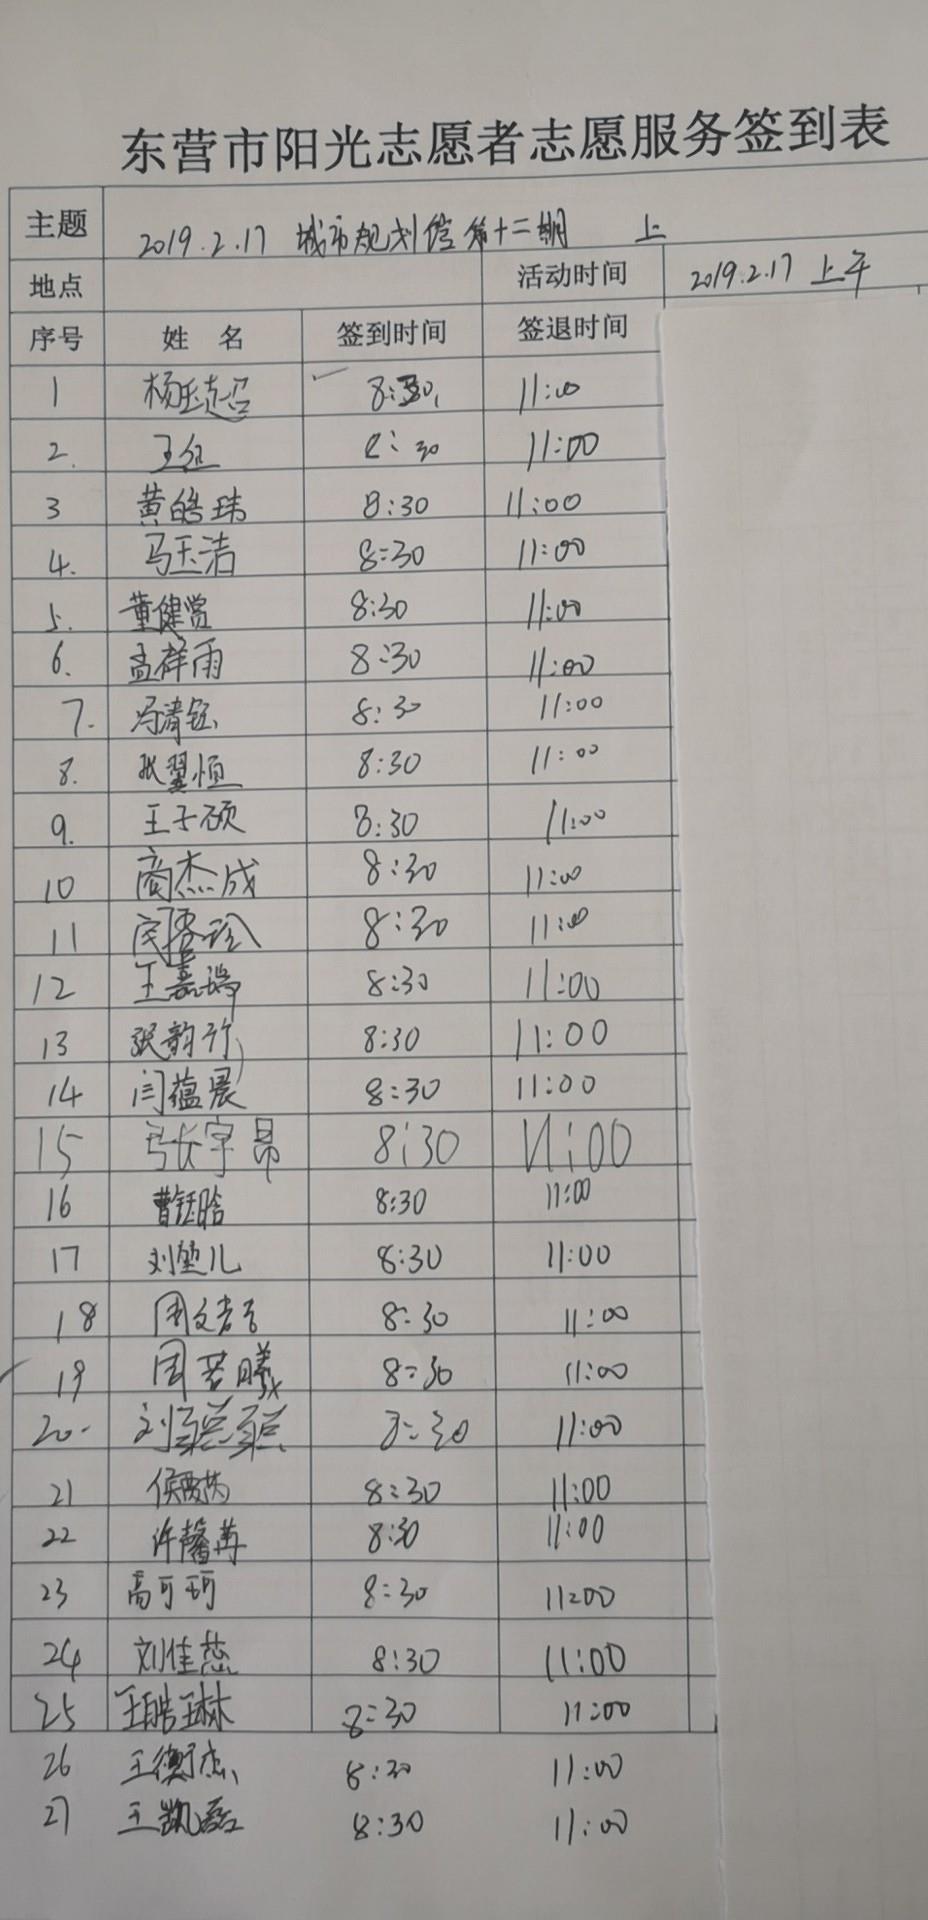 东营市阳光志愿者志愿服务签到表
主题 2019.2.17 城市规划馆第十二期 上
地点 活动时间 2019.2.17 上午
序号 姓 名 签到时间 签退时间
1 杨玉超 8:30 11:00
2. 王红 8:30 11:00
3 黄皓玮 8:30 11:00
4. 马玉洁 8:30 11:00
5. 董健赏 8:30 11:00
6. 孟祥雨 8:30 11:00
7. 冯清钰 8:30 11:00
8. 张翼恒 8:30 11:00
9. 王子硕 8:30 11:00
10 商杰成 8:30 11:00
11 8:30 11:00
12 王嘉瑞 8:30 11:00
13 张韵竹 8:30 11:00
14 闫蕴晨 8:30 11:00
15 张宇昂 8:30 11:00
16 曹钰晗 8:30 11:00
17 刘堃儿 8:30 11:00
18 8:30 11:00
19 周若曦 8:30 11:00
20. 刘 8:30 11:00
21 侯 8:30 11:00
22 许馨苒 8:30 11:00
23 高可珂 8:30 11:00
24 刘佳蕊 8:30 11:00
25 王皓琳 8:30 11:00
26 王衡杰 8:30 11:00
27 王凯磊 8:30 11:00